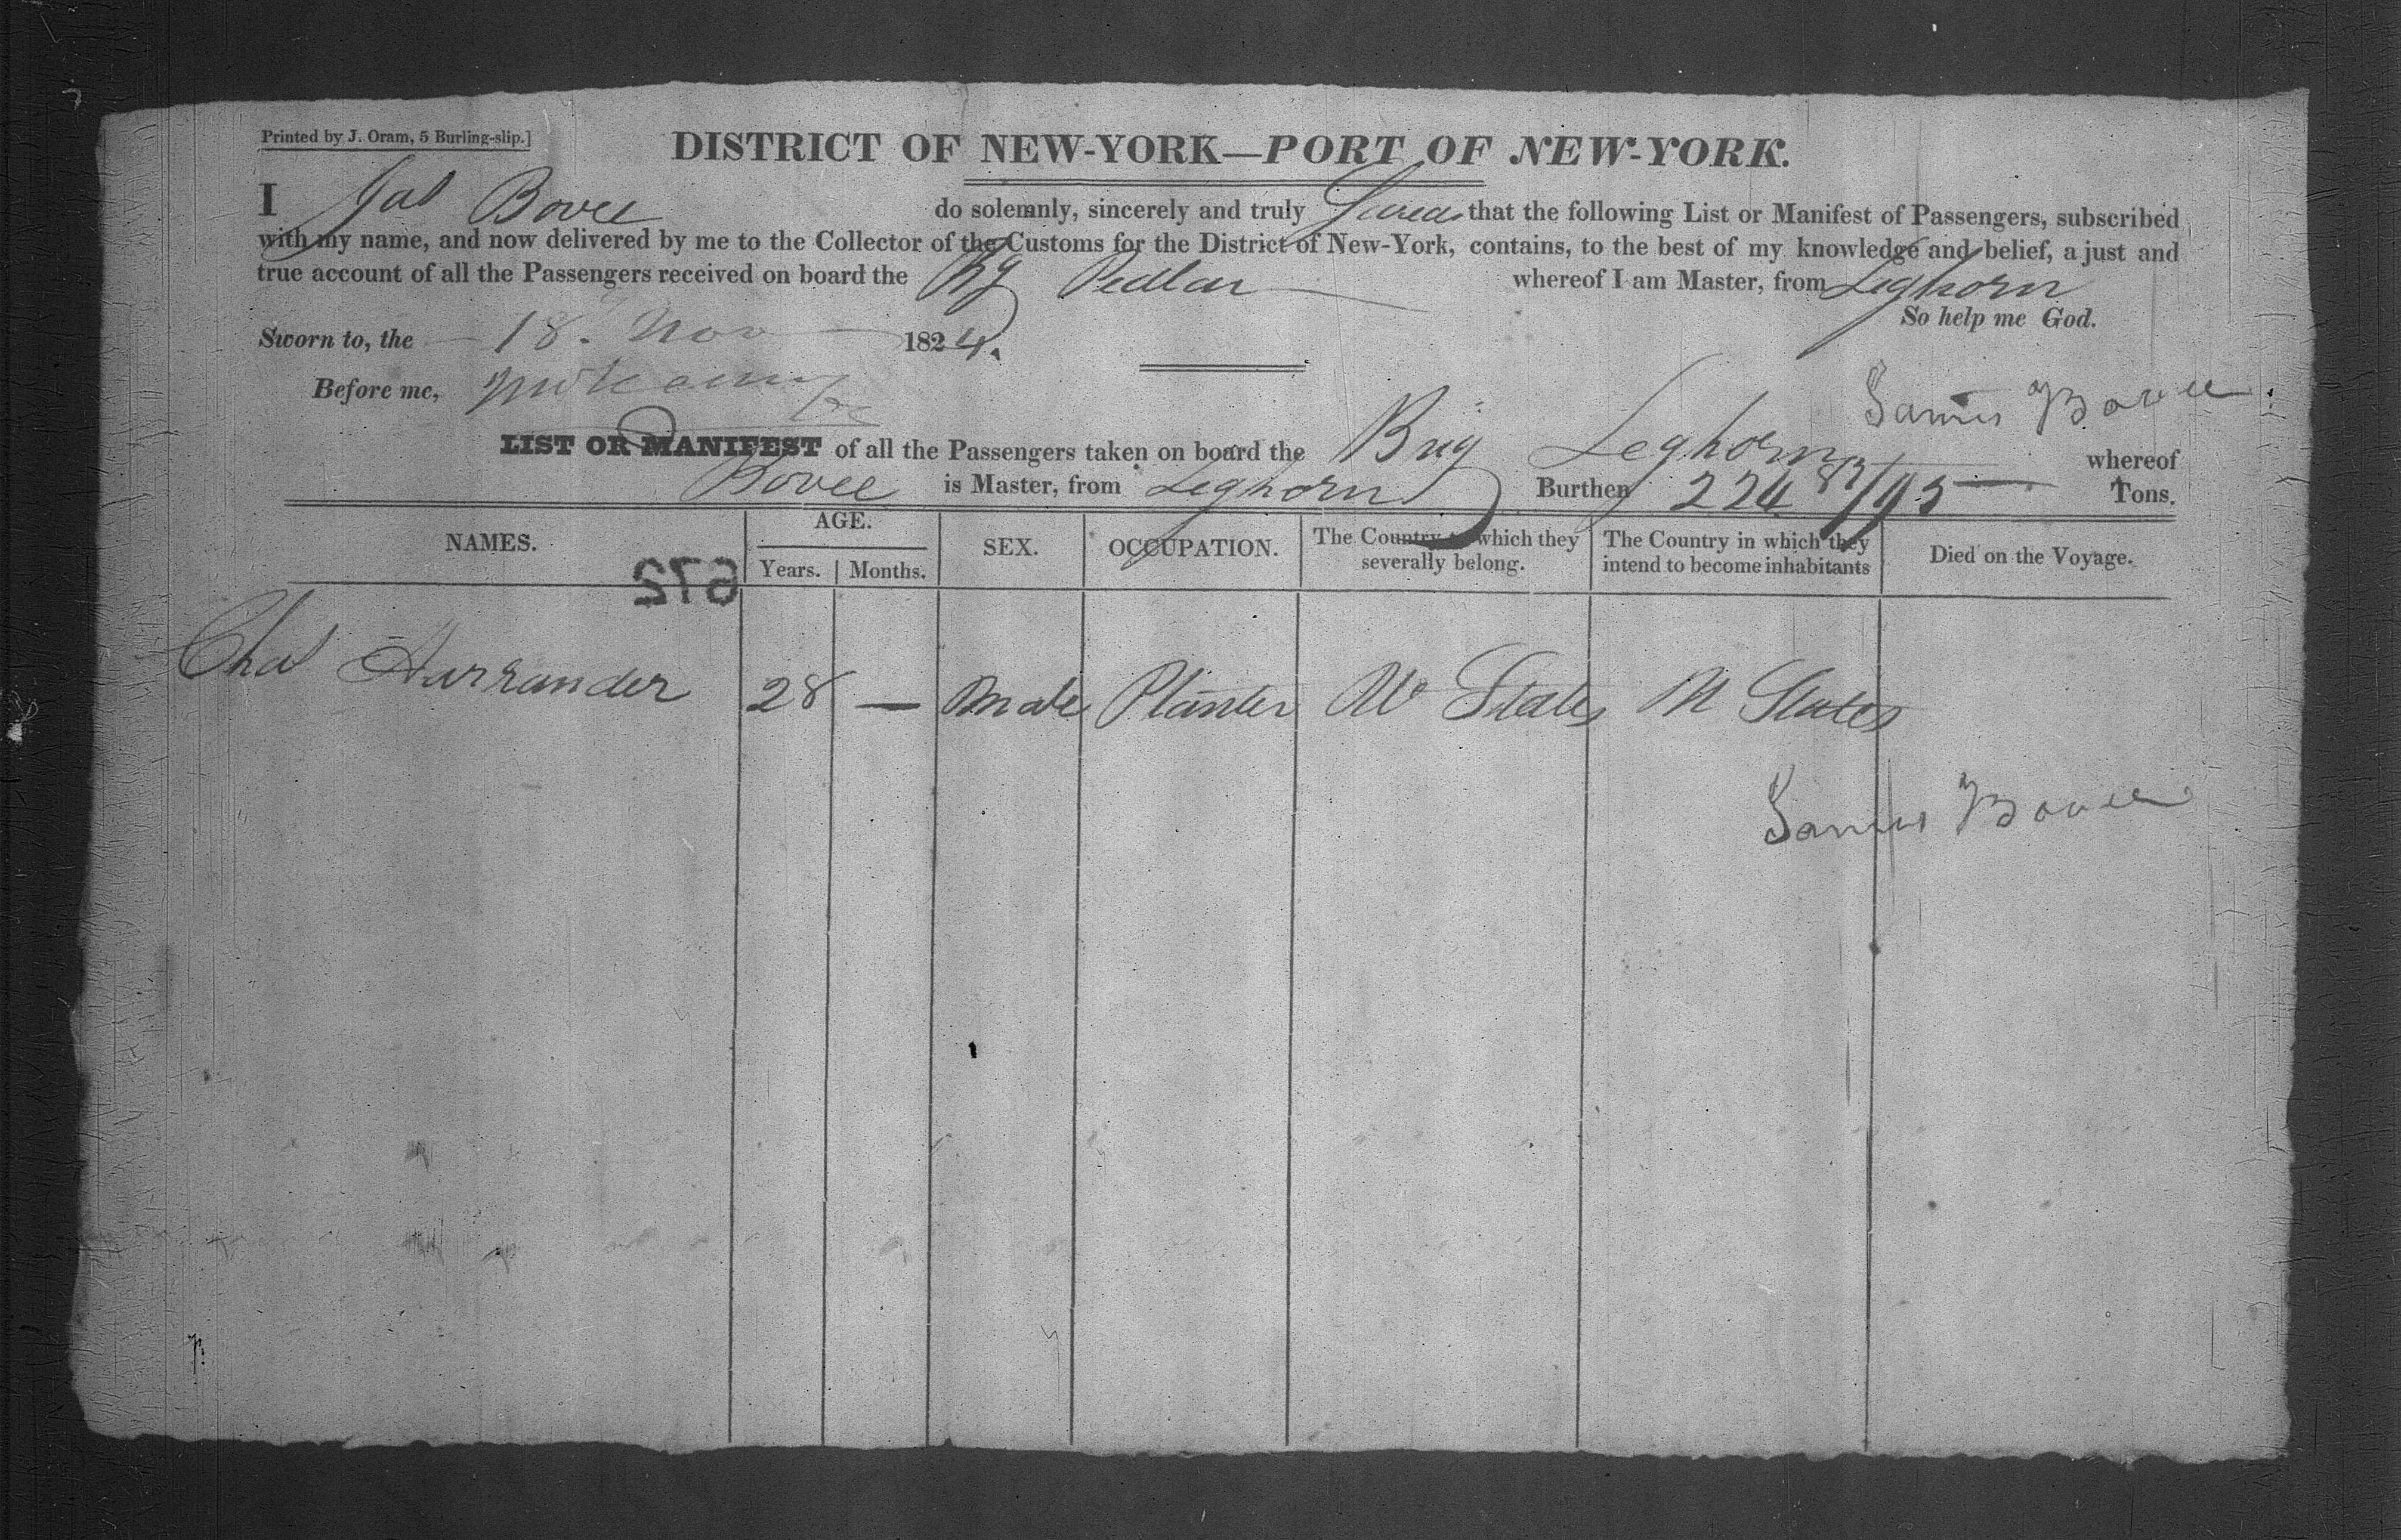 Printed by J. Oram, 5 Burling-slip.]
DISTRICT OF NEW-YORK—PORT OF NEW-YORK.
I Jas Bovee do solemnly, sincerely and truly Swear that the following List or Manifest of Passengers, subscribed
with my name, and now delivered by me to the Collector of the Customs for the District of New-York, contains, to the best of my knowledge and belief, a just and
true account of all the Passengers received on board the Bg Pedlar whereof I am Master, from Leghorn
So help me God.
Sworn to, the 18. Nov 1824.
Before me,
James Bovee
LIST OR MANIFEST of all the Passengers taken on board the Brig Leghorn whereof
Bovee is Master, from Leghorn Burthen 224 /95 Tons.
NAMES. AGE. SEX. OCCUPATION. The Country to which they severally belong. The Country in which they intend to become inhabitants Died on the Voyage.
Years. Months.
672
Chas 28 — Male Planter U States U States
James Bovee